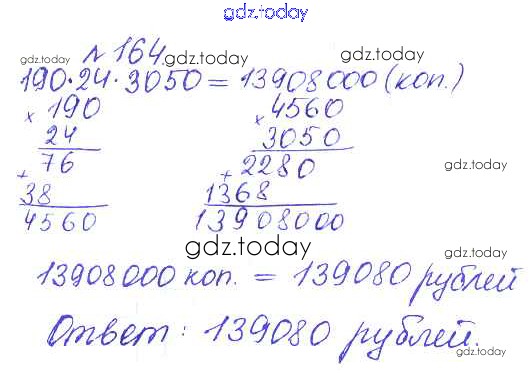 gdz.today
№ 164. gdz.today
gdz.today
190·24·3050 = 13908000 (коп.)
× 190 × 4560
24 3050
gdz.today gdz.today gdz.today
+ 76 + 2280
38 1368
4560 13908000
gdz.today
gdz.today
13908000 коп. = 139080 рублей
Ответ: 139080 рублей.